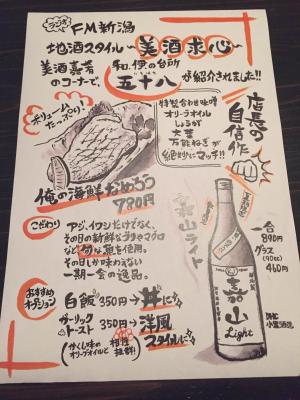 ラジオ
FM新潟
地酒スタイル~美酒求心~
美酒嘉芳
のコーナーで、
和伊の台所
五十八が紹介されました!!
ボリューム
たっぷり!
特製合わせ味噌
オリーブオイル
しょうが
大葉
万能ねぎが
絶妙にマッチ!!
店長の
自信作
俺の海鮮なめろう
780円
こだわり
アジ、イワシだけでなく、
その日の新鮮なブリやマグロ
など旬な魚を使用。
その日しか味わえない
一期一会の逸品。
おすすめ
オプション
白飯 350円→丼に!
ガーリック
トースト 350円→洋風
スタイルに!
(かくし味の
オリーブオイルと 相性
抜群!)
嘉山ライト
嘉山
Light
一合
890円
グラス
(90cc)
460円